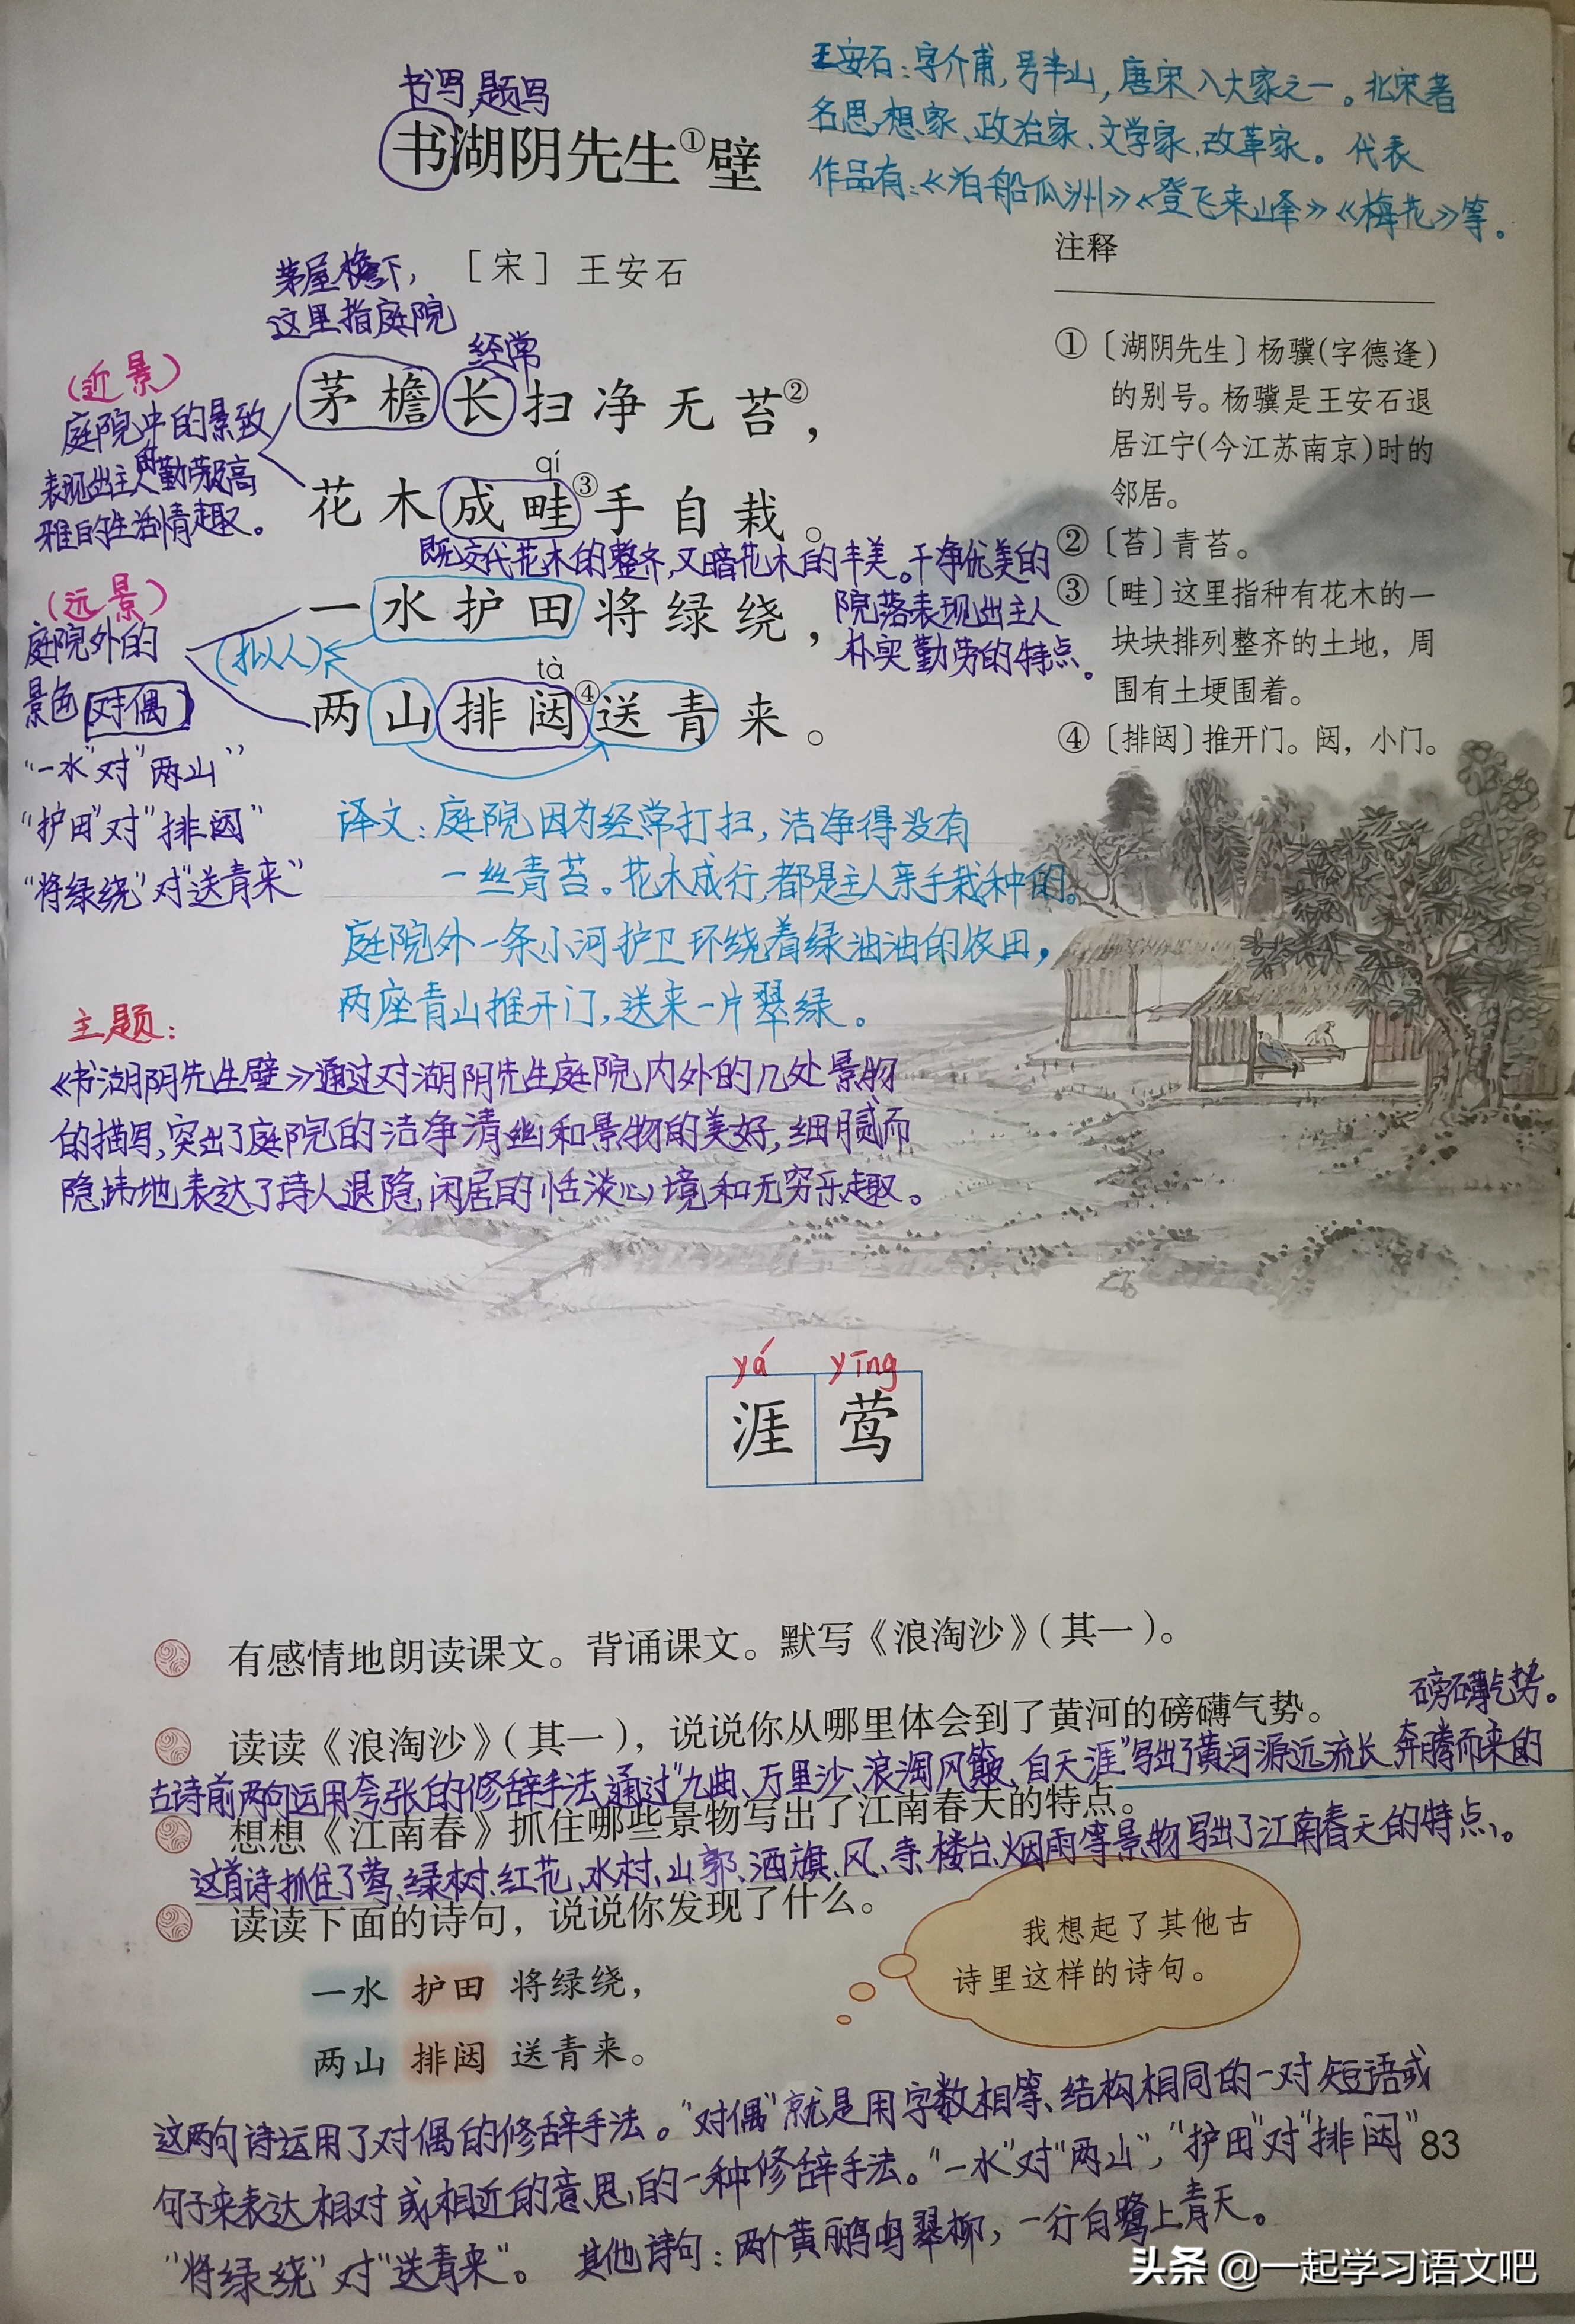 王安石:字介甫,号半山,唐宋八大家之一。北宋著
名思想家、政治家、文学家、改革家。代表
作品有:《泊船瓜洲》《登飞来峰》《梅花》等。
书写,题写
书湖阴先生①壁
[宋] 王安石
茅屋檐下,
这里指庭院
经常
茅檐长扫净无苔②,
qí
花木成畦③手自栽。
既交代花木的整齐,又暗花木的丰美。干净优美的
院落表现出主人
朴实勤劳的特点。
一水护田将绿绕,
(拟人)
tà
两山排闼④送青来。
(近景)
庭院中的景致
表现出主人的勤劳及高
雅的生活情趣。
(远景)
庭院外的
景色(对偶)
“一水”对“两山”
“护田”对“排闼”
“将绿绕”对“送青来”
注释
①〔湖阴先生〕杨骥(字德逢)
的别号。杨骥是王安石退
居江宁(今江苏南京)时的
邻居。
②〔苔〕青苔。
③〔畦〕这里指种有花木的一
块块排列整齐的土地,周
围有土埂围着。
④〔排闼〕推开门。闼,小门。
译文:庭院因为经常打扫,洁净得没有
一丝青苔。花木成行,都是主人亲手栽种的。
庭院外一条小河护卫环绕着绿油油的农田,
两座青山推开门,送来一片翠绿。
主题:
《书湖阴先生壁》通过对湖阴先生庭院内外的几处景物
的描写,突出了庭院的洁净清幽和景物的美好,细腻而
隐讳地表达了诗人退隐,闲居的恬淡心境和无穷乐趣。
yá yīng
涯 莺
有感情地朗读课文。背诵课文。默写《浪淘沙》(其一)。
读读《浪淘沙》(其一),说说你从哪里体会到了黄河的磅礴气势。
磅礴气势。
古诗前两句运用夸张的修辞手法,通过“九曲、万里沙、浪淘风簸、自天涯”写出了黄河源远流长、奔腾而来的
想想《江南春》抓住哪些景物写出了江南春天的特点。
这首诗抓住了莺、绿树、红花、水村、山郭、酒旗、风、寺、楼台、烟雨等景物写出了江南春天的特点。
读读下面的诗句,说说你发现了什么。
一水 护田 将绿绕,
两山 排闼 送青来。
我想起了其他古
诗里这样的诗句。
这两句诗运用了对偶的修辞手法。“对偶”就是用字数相等、结构相同的一对短语或
句子来表达相对或相近的意思的一种修辞手法。“一水”对“两山”,“护田”对“排闼”
“将绿绕”对“送青来”。 其他诗句:两个黄鹂鸣翠柳,一行白鹭上青天。
83
头条 @一起学习语文吧